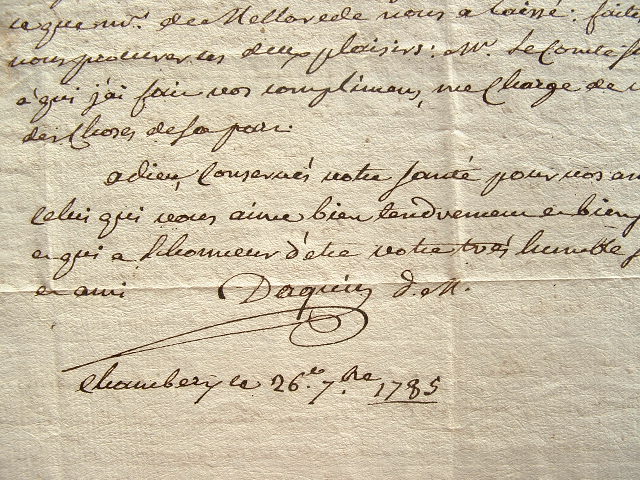 ce que mr. de Mellarede nous a laissé: fait
nous procurer ces deux plaisirs: Mr. Le Comte
à qui j'ai fait vos complimens, me Charge de
des Choses de sa part.
adieu, Conservés votre santé pour vos am
Celui qui vous aime bien tendrement et bien
et qui a L'honneur d'être votre très humble
et ami Daquin D. M.
Chambery ce 26.e 7.bre 1785